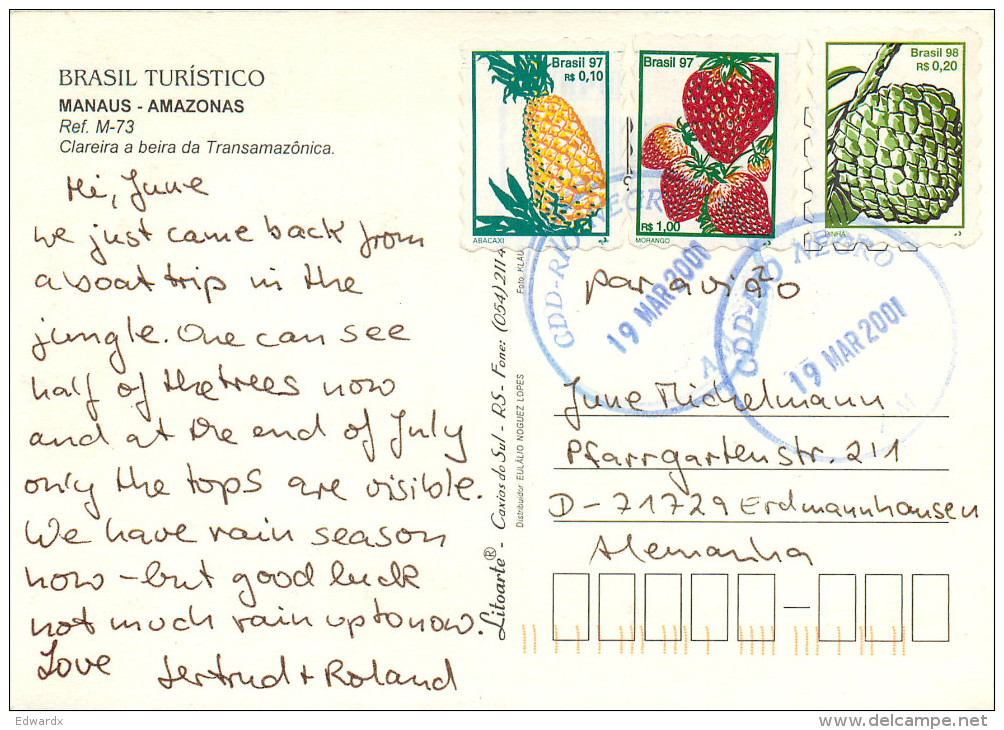 BRASIL TURÍSTICO
MANAUS - AMAZONAS
Ref. M-73
Clareira a beira da Transamazônica.
Hi, June
we just came back from
a boat trip in the
jungle. One can see
half of the trees now
and at the end of July
only the tops are visible.
We have rain season
now - but good luck
not much rain up to now.
Love
Gertrud + Roland
Litoarte® - Caxias do Sul - RS - Fone: (054) 2114
Distribuidor EULÁLIO NOGUEZ LOPES
Foto: KLAU
Brasil 97
R$ 0,10
ABACAXI
Brasil 97
R$ 1,00
MORANGO
Brasil 98
R$ 0,20
PINHA
CDD-RIO NEGRO
19 MAR 2001
CDD-RIO NEGRO
19 MAR 2001
AM
par avião
June Michelmann
Pfarrgartenstr. 2'1
D-71729 Erdmannhausen
Alemanha
Edwardx
delcampe.net